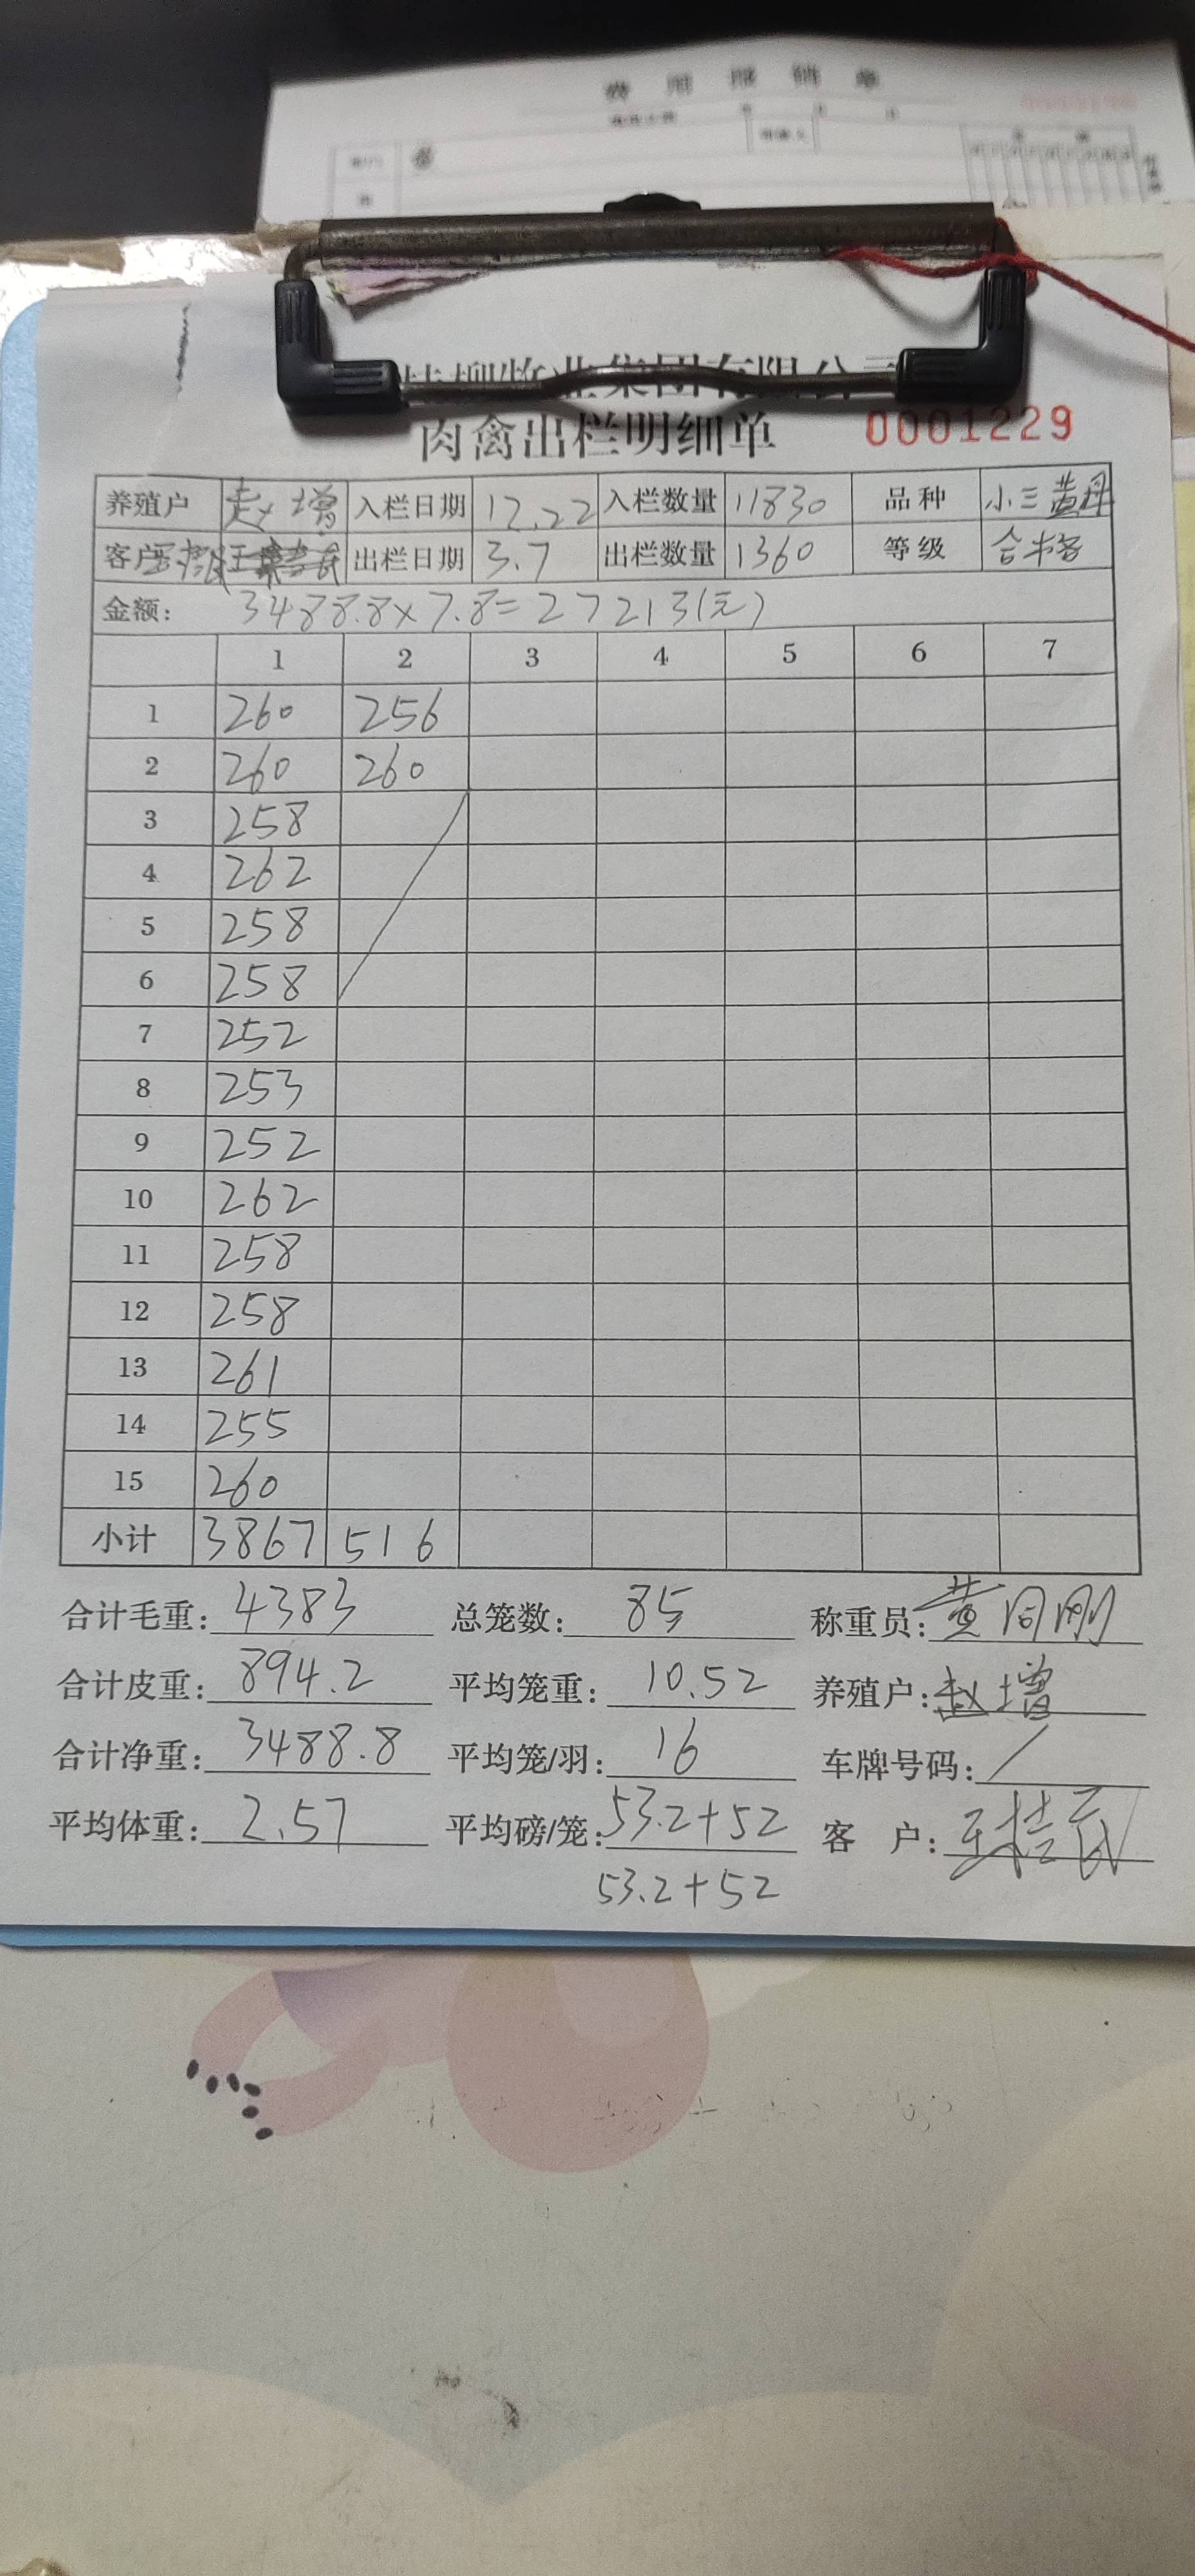 费用报销单
桂柳牧业集团有限公司
肉禽出栏明细单 0001229
养殖户 赵增 入栏日期 12.22 入栏数量 11830 品种 小三黄
客户 出栏日期 3.7 出栏数量 1360 等级 合格
金额: 3488.8×7.8=27213(元)
1 2 3 4 5 6 7
1 260 256
2 260 260
3 258
4 262
5 258
6 258
7 252
8 253
9 252
10 262
11 258
12 258
13 261
14 255
15 260
小计 3867 516
合计毛重: 4383 总笼数: 85 称重员: 黄同刚
合计皮重: 894.2 平均笼重: 10.52 养殖户: 赵增
合计净重: 3488.8 平均笼/羽: 16 车牌号码: /
平均体重: 2.57 平均磅/笼: 53.2+52 客 户:
53.2+52